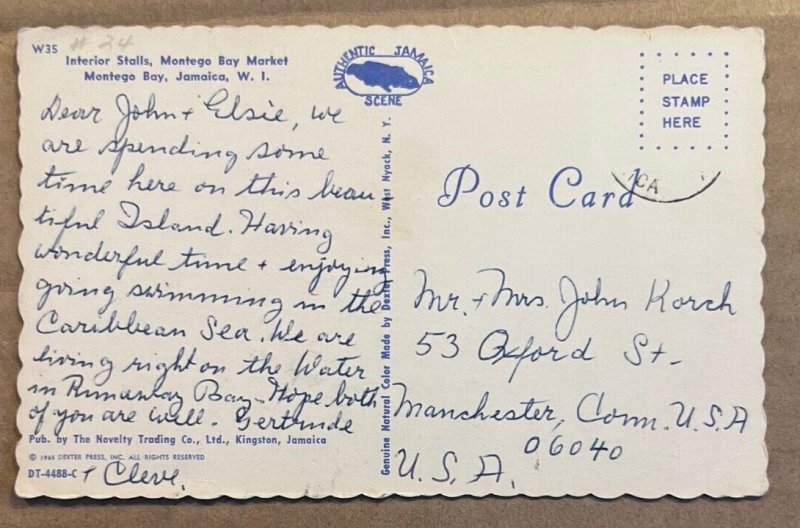 W35 # 24
Interior Stalls, Montego Bay Market
Montego Bay, Jamaica, W. I.
Dear John + Elsie, we
are spending some
time here on this beau
tiful Island. Having
wonderful time + enjoying
going swimming in the
Caribbean Sea. We are
living right on the Water
in Runaway Bay. Hope both
of you are well. Gertrude
Pub. by The Novelty Trading Co., Ltd., Kingston, Jamaica
© 1965 DEXTER PRESS, INC. ALL RIGHTS RESERVED
DT-4488-C + Cleve.
AUTHENTIC JAMAICA
SCENE
Genuine Natural Color Made by Dexter Press, Inc., West Nyack, N. Y.
PLACE
STAMP
HERE
Post Card
ICA
Mr. + Mrs. John Korch
53 Oxford St.
Manchester, Conn. U.S.A
06040
U.S.A.